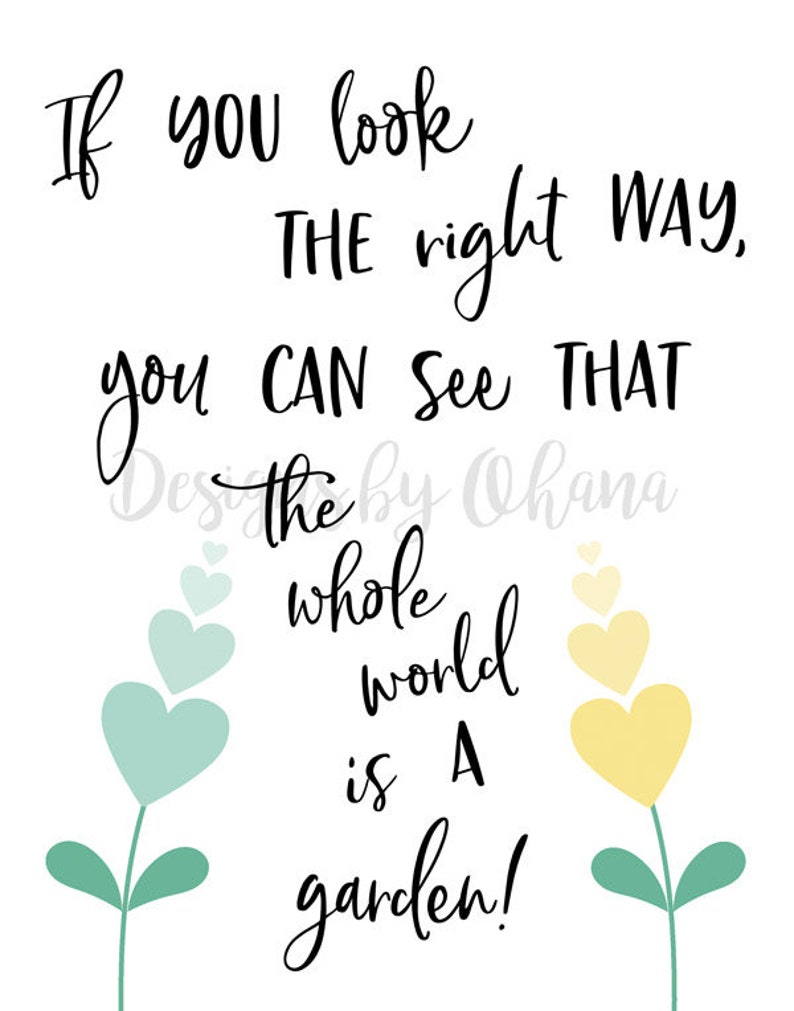 If YOU look
THE right WAY,
you CAN see THAT
Designs by Ohana
the
whole
world
is A
garden!